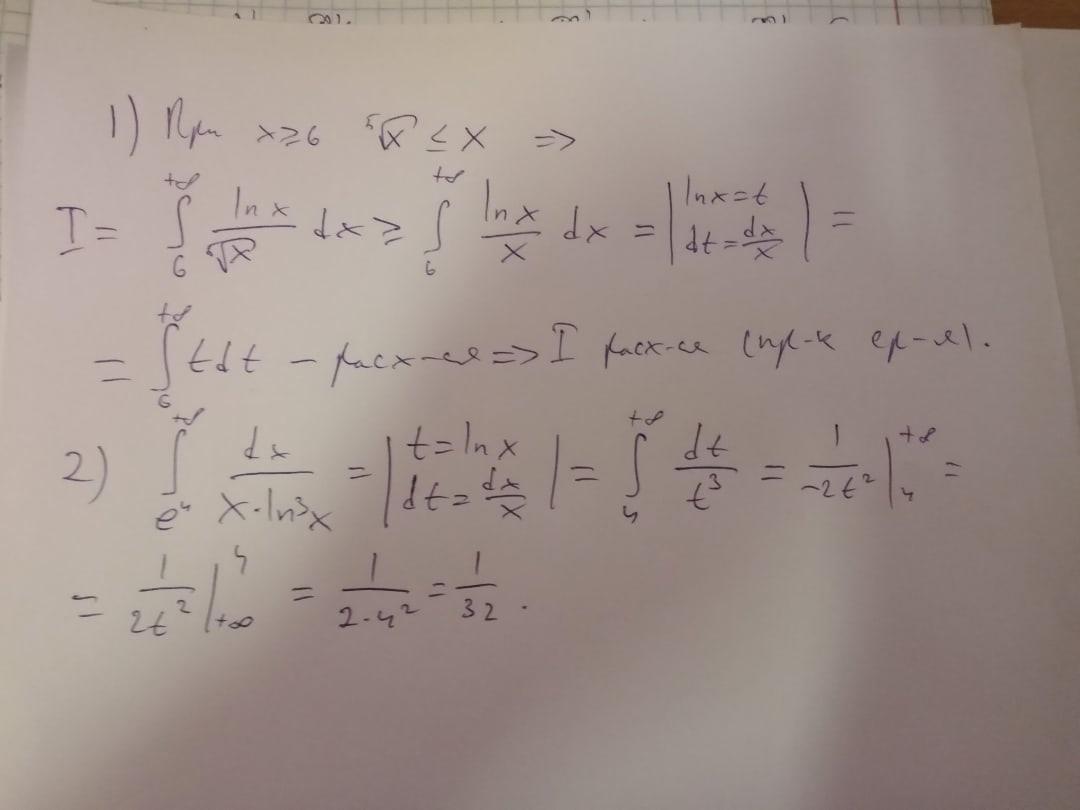 1) При x ≥ 6 ⁵√x ≤ x ⇒
I = ∫₆^{+∞} ln x / ⁵√x dx ≥ ∫₆^{+∞} ln x / x dx = | ln x = t dt = dx/x | =
= ∫₆^{+∞} t dt – расх-ся ⇒ I расх-ся (пр-к ср-я).
2) ∫_{e⁴}^{+∞} dx / (x · ln³x) = | t = ln x dt = dx/x | = ∫₄^{+∞} dt / t³ = 1 / (-2t²) |₄^{+∞} =
= 1 / (2t²) |_{+∞}^4 = 1 / (2·4²) = 1/32 .